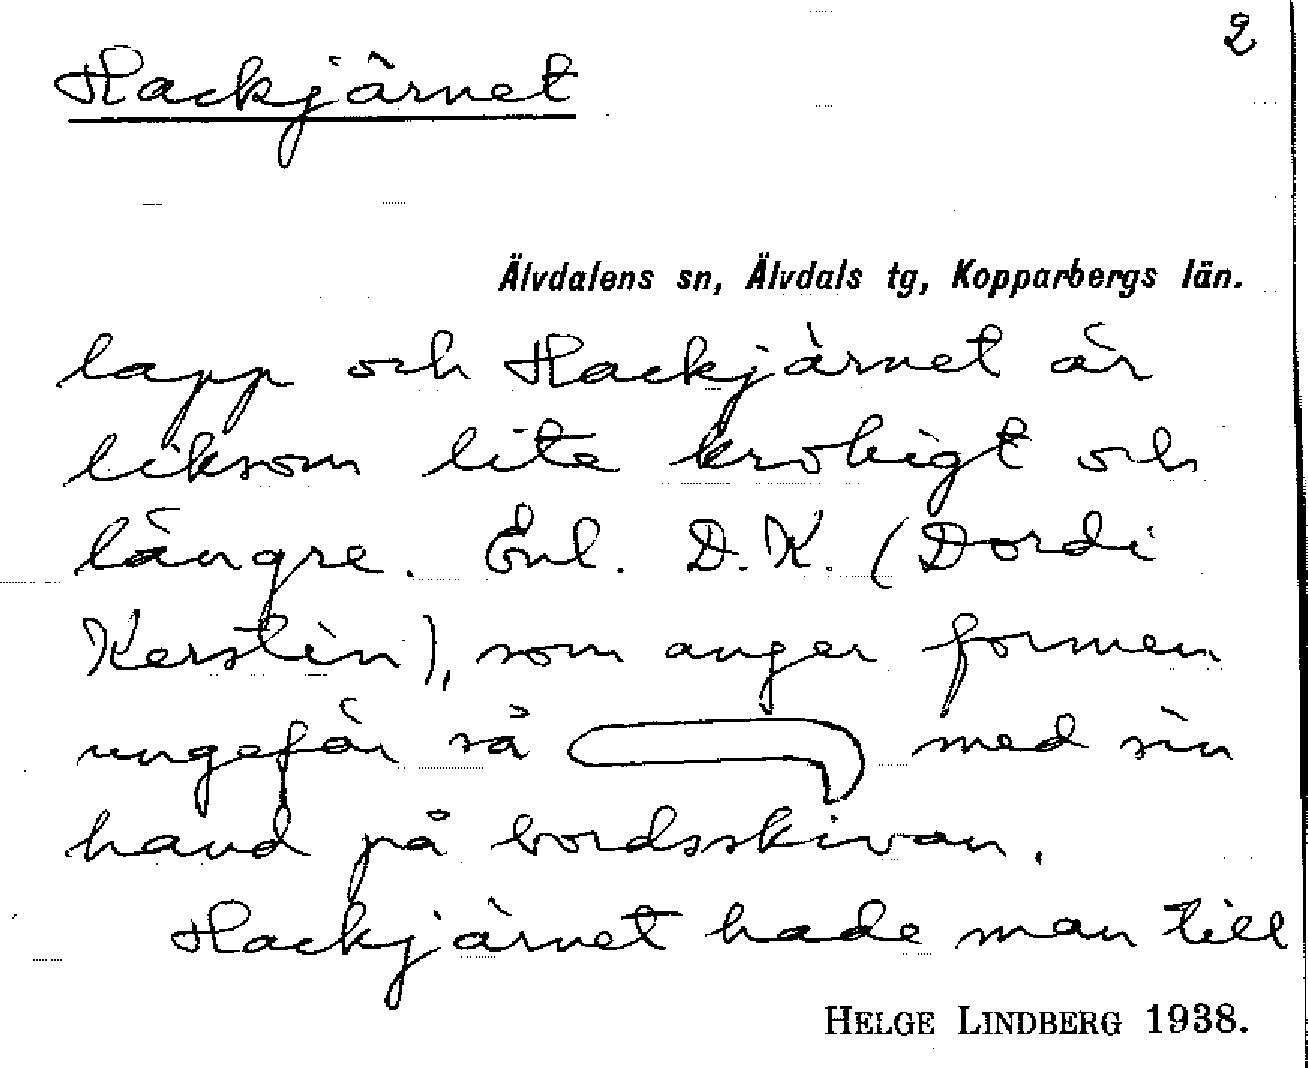 2
Hackjärnet
Älvdalens sn, Älvdals tg, Kopparbergs län.
lapp och Hackjärnet är
liksom lite krokigt och
längre. Enl. D.K. (Dordi
Kerstin), som anger formen
ungefär så med sin
hand på bordsskivan.
Hackjärnet hade man till
HELGE LINDBERG 1938.